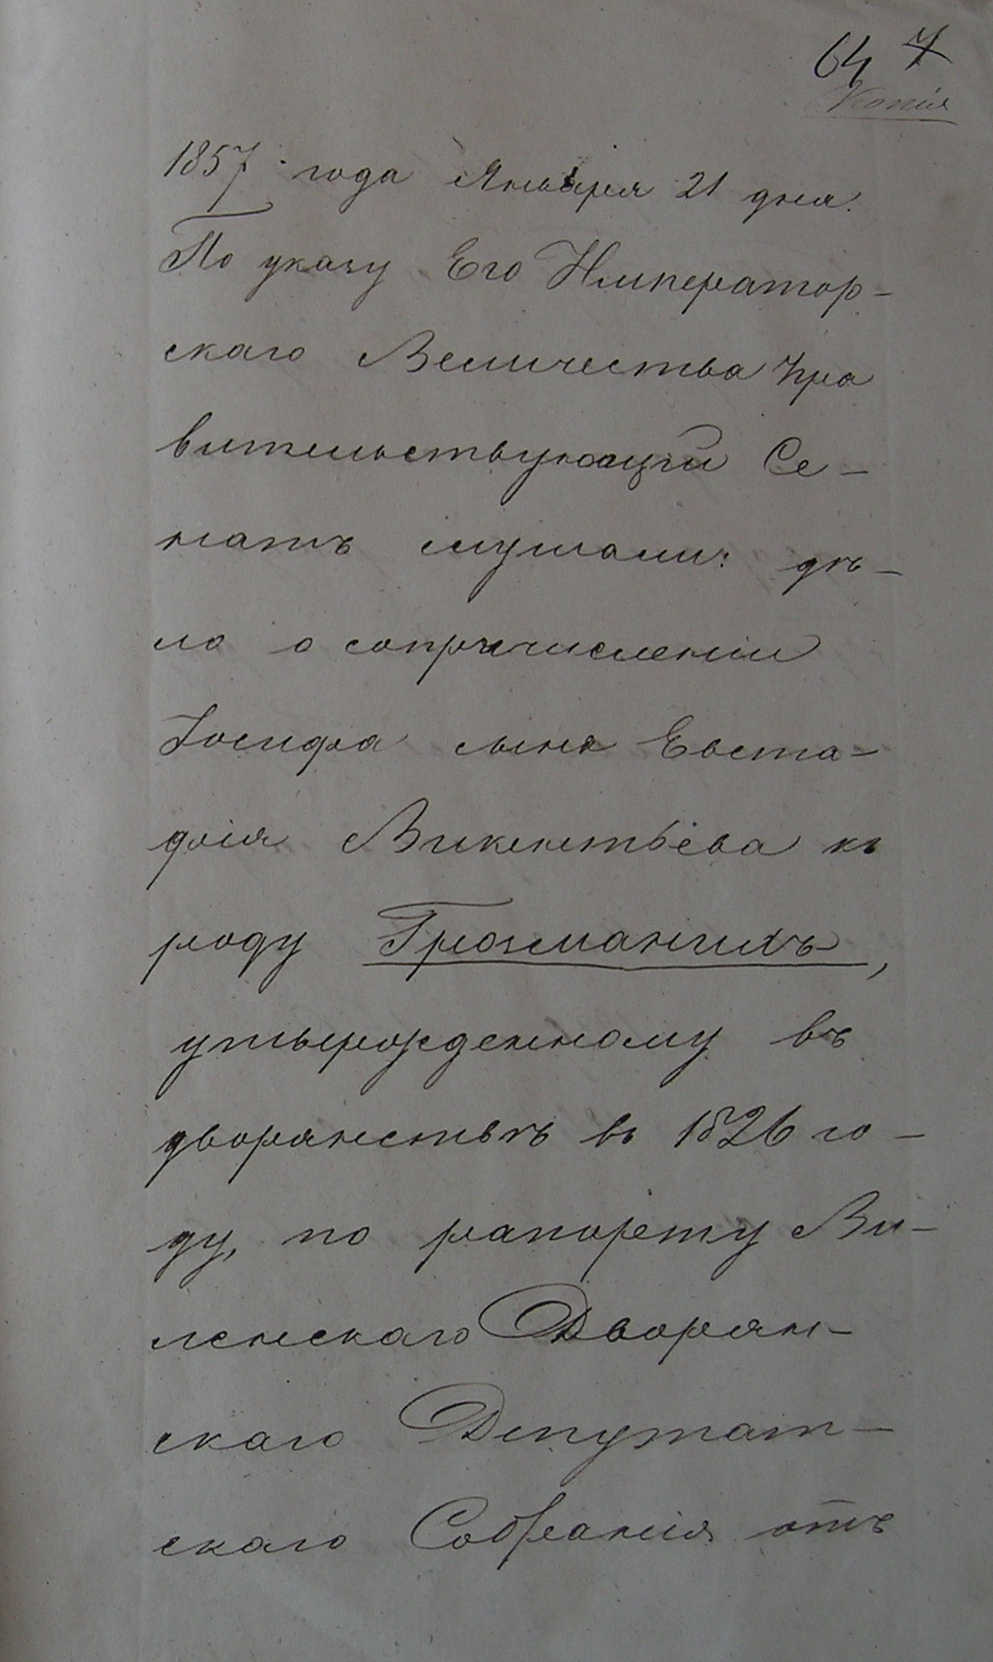 64 7
Копія
1857 года Января 21 дня.
По указу Его Император-
скаго Величества Пра
вительствующій Се-
натъ слушали: дѣ-
ло о сопричисленіи
Іосифа сына Евста-
фія Викентьева къ
роду Грозманихъ,
утвержденному въ
дворянствѣ въ 1826 го-
ду, по рапорту Ви-
ленскаго Дворян-
скаго Депутат-
скаго Собранія отъ